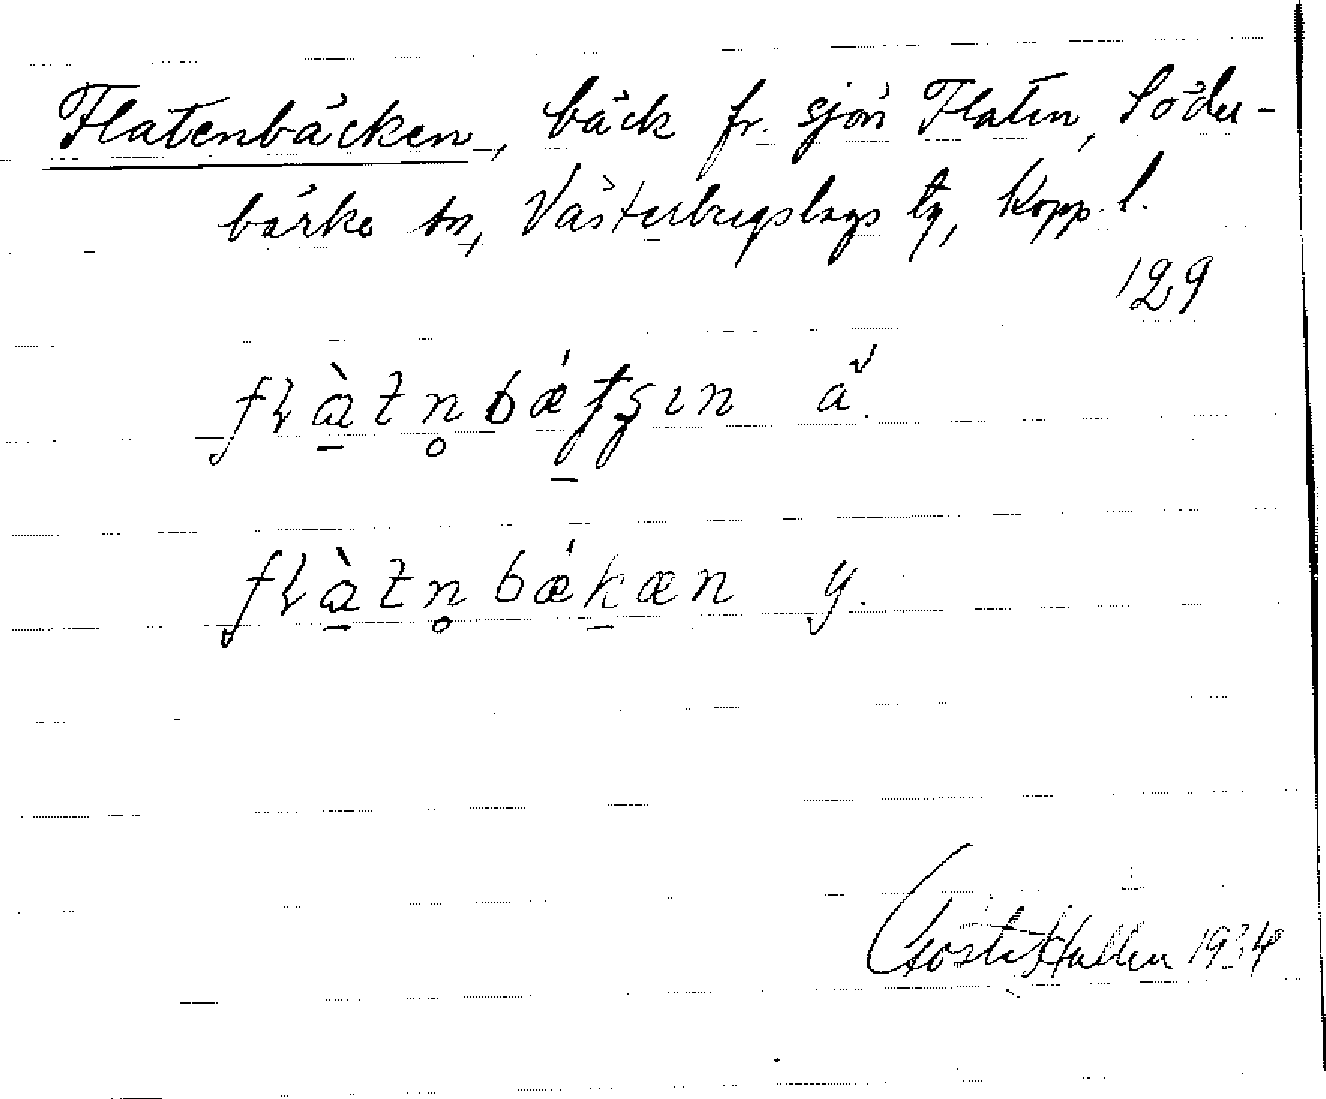 Flatenbäcken, bäck fr. sjön Flaten, Söder-
bärke sn, Västerbergslags tg, Kopp. l.
129
flàtn̥bǽtʂın ǎ.
flàtn̥bǽkæn y.
Gösta Hallén 1934